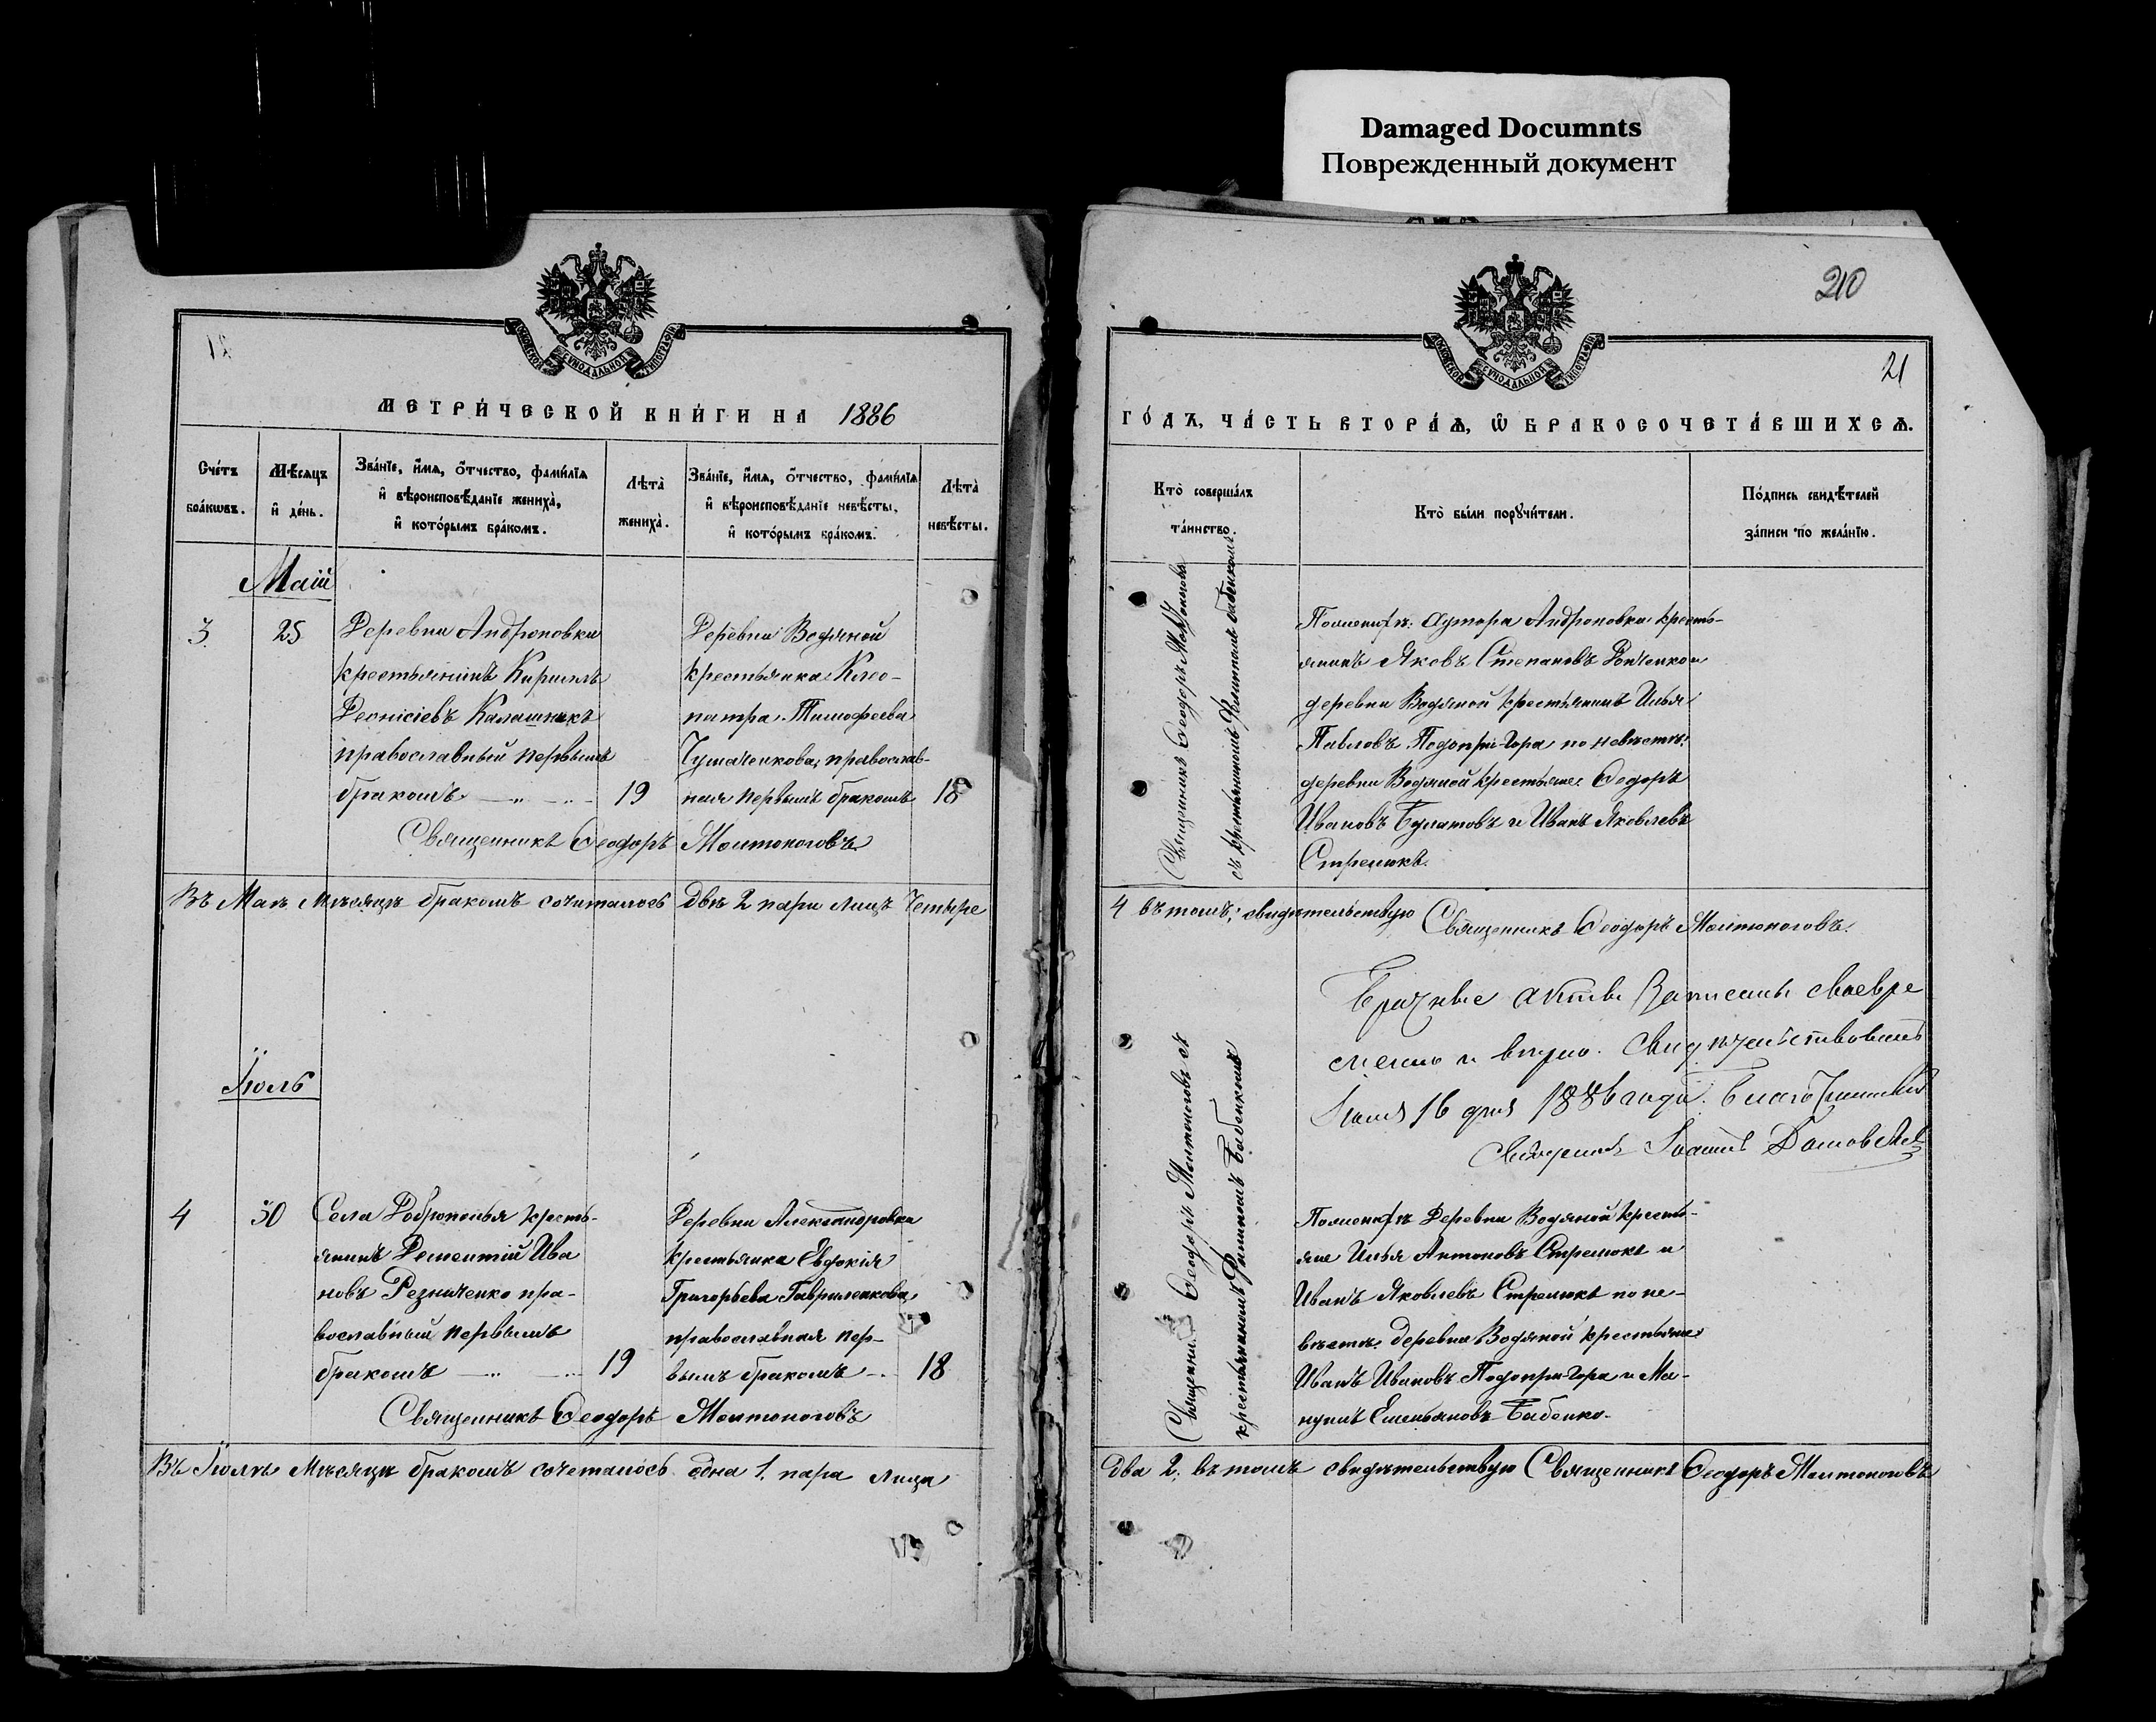 Damaged Documnts
Поврежденный документ
210
21
МОСКОВСКОЙ СѴНОДАЛЬНОЙ ТИПОГРАФІИ
МОСКОВСКОЙ СѴНОДАЛЬНОЙ ТИПОГРАФІИ
МЕТРИ́ЧЕСКОЙ КНИ́ГИ НА 1886
Сче́тъ бра́кωвъ.
Мѣ́сяцъ и҆ де́нь.
Зва́нїе, и҆́мѧ, ѻ҆́тчество, фами́лїѧ
и҆ вѣроисповѣ́данїе жениха̀,
и҆ кото́рымъ бра́комъ.
Лѣта̀ жениха̀.
Зва́нїе, и҆́мѧ, ѻ҆́тчество, фами́лїѧ
и҆ вѣроисповѣ́данїе невѣ́сты,
и҆ кото́рымъ бра́комъ.
Лѣта̀ невѣ́сты.
Маій
3
25
Деревни Андроновки
крестьянинъ Кириллъ
Деонісіевъ Калашникъ
православный первымъ
бракомъ
19
Деревни Водяной
крестьянка Клео-
патра Тимофеева
Чумаченкова, православ-
ная первымъ бракомъ
18
Священникъ Ѳеодоръ Молтоноговъ
Въ Маѣ Мѣсяцѣ бракомъ сочиталось двѣ 2 пары лицъ Четыре
Іюль
4
30
Села Доброполья кресть-
янинъ Дементій Ива
новъ Резниченко пра-
вославный первымъ
бракомъ
19
Деревни Александровки
крестьянка Евдокія
Григорьева Гавриленкова,
православная пер-
вымъ бракомъ
18
Священникъ Ѳеодоръ Молтоноговъ
Въ Іюлѣ Мѣсяцѣ бракомъ сочеталось одна 1. пара Лица
ГО́ДЪ, ЧА́СТЬ ВТОРА́Ѧ, Ѽ БРАКОСОЧЕТА́ВШИХСѦ.
Кто̀ соверша́лъ
та́инство.
Кто̀ бы́ли порꙋчи́тели.
По́дпись свидѣ́телей
за́писи по жела́нїю.
Священникъ Ѳеодоръ Молтоноговъ
съ крестьяниномъ Филиппомъ Бабенкомъ.
По женихѣ: Хутора Андроновки кресть-
янинъ Яковъ Степановъ и
деревни Водяной крестьянинъ Илья
Павловъ Подопри-Гора по невѣстѣ:
деревни Водяной крестьяне: Ѳедоръ
Ивановъ Булатовъ и Иванъ Яковлевъ
Стрелюкъ.
4 въ томъ; свидѣтельствую Священникъ Ѳеодоръ Молтоноговъ.
Брачные акты записаны своевре
менно и вѣрно. Свидѣтельствовалъ
Іюля 16 дня 1886 года. Благочинный
Священникъ Іоаннъ
Священникъ Ѳеодоръ Молтоноговъ съ
крестьяниномъ Филиппомъ Бабенкомъ
По женихѣ Деревни Водяной кресть-
яне Илья Антоновъ Стрелюкъ и
Иванъ Яковлевъ Стрелюкъ по не-
вѣстѣ. деревни Водяной крестьяне:
Иванъ Ивановъ Подопри-Гора и Ма-
нуилъ Емельяновъ Бабенко.
два 2; въ томъ свидѣтельствую Священникъ Ѳеодоръ Молтоноговъ